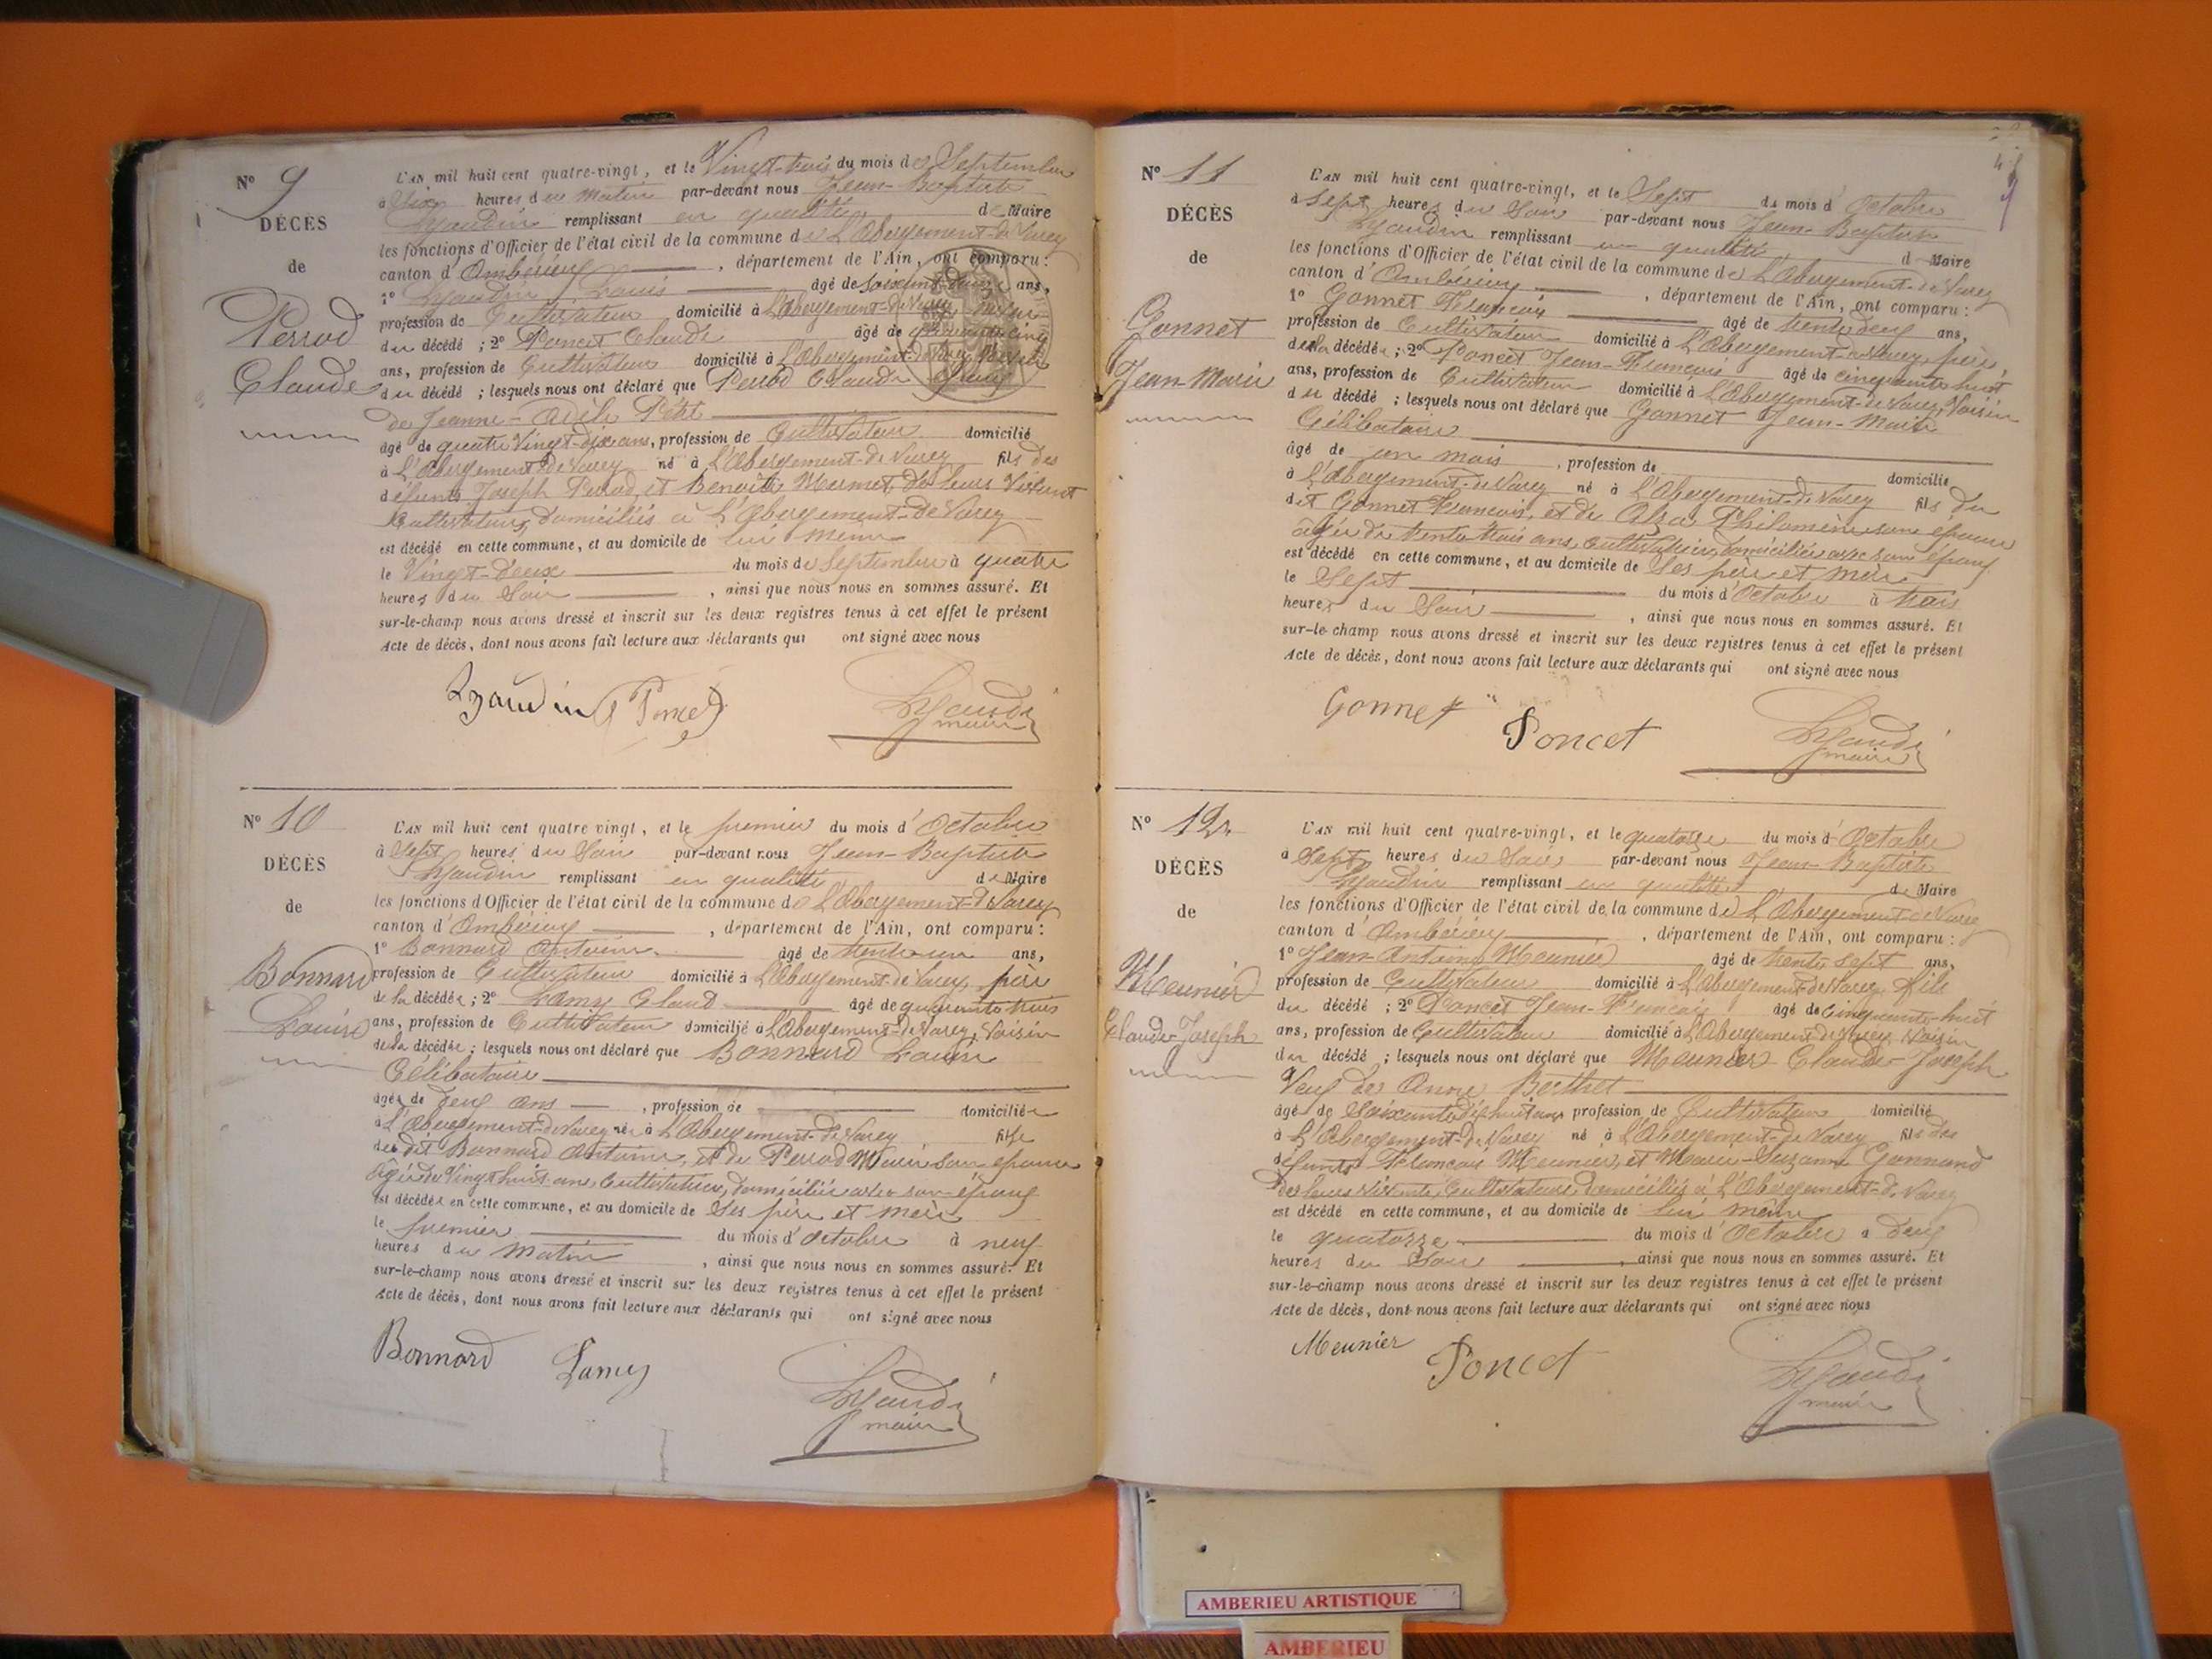 N° 9
DÉCÈS
de
Perrod
Claude
L'AN mil huit cent quatre-vingt, et le Vingt-trois du mois de Septembre
à Six heures du Matin par-devant nous Jean-Baptiste
Lyaudin remplissant en qualité de Maire
les fonctions d'Officier de l'état civil de la commune de L'Abergement-de-Varey
canton d'Ambérieu, département de l'Ain, ont comparu :
1° Lyaudin Louis âgé de ans,
profession de Cultivateur domicilié à L'Abergement-de-Varey
du décédé ; 2° Poncet Claude âgé de quarante cinq
ans, profession de Cultivateur domicilié à L'Abergement-de-Varey
du décédé ; lesquels nous ont déclaré que Perrod Claude époux
de Jeanne-Adèle Petit
âgé de quatre Vingt-dix ans, profession de Cultivateur domicilié
à L'Abergement-de-Varey né à L'Abergement-de-Varey fils des
défunts Joseph Perrod, et Benoîte Mermet, de leurs Vivant
Cultivateurs, domiciliés à L'Abergement-de-Varey
est décédé en cette commune, et au domicile de lui même
le Vingt-deux du mois de Septembre à quatre
heures du Soir, ainsi que nous nous en sommes assuré. Et
sur-le-champ nous avons dressé et inscrit sur les deux registres tenus à cet effet le présent
Acte de décès, dont nous avons fait lecture aux déclarants qui ont signé avec nous
Lyaudin Poncet Lyaudin
maire
N° 10
DÉCÈS
de
Bonnard
Louise
L'AN mil huit cent quatre vingt, et le premier du mois d'Octobre
à Sept heures du Soir par-devant nous Jean-Baptiste
Lyaudin remplissant en qualité de Maire
les fonctions d'Officier de l'état civil de la commune de L'Abergement-de-Varey
canton d'Ambérieu, département de l'Ain, ont comparu :
1° Bonnard Antoine âgé de trente un ans,
profession de Cultivateur domicilié à L'Abergement-de-Varey, père
de la décédée ; 2° Lamy Claud âgé de quarante trois
ans, profession de Cultivateur domicilié à L'Abergement-de-Varey, Voisin
de la décédée ; lesquels nous ont déclaré que Bonnard Louise
Célibataire
âgée de deux ans, profession de domiciliée
à L'Abergement-de-Varey née à L'Abergement-de-Varey fille
du dit Bonnard Antoine, et de Perrod Marie son épouse
âgée de Vingt huit ans, Cultivatrice, domiciliée avec son époux
est décédée en cette commune, et au domicile de Ses père et mère
le premier du mois d'Octobre à neuf
heures du Matin, ainsi que nous nous en sommes assuré. Et
sur-le-champ nous avons dressé et inscrit sur les deux registres tenus à cet effet le présent
Acte de décès, dont nous avons fait lecture aux déclarants qui ont signé avec nous
Bonnard Lamy Lyaudin
maire
N° 11
DÉCÈS
de
Gonnet
Jean-Marie
L'AN mil huit cent quatre-vingt, et le Sept du mois d'Octobre
à Sept heures du Soir par-devant nous Jean-Baptiste
Lyaudin remplissant en qualité de Maire
les fonctions d'Officier de l'état civil de la commune de L'Abergement-de-Varey
canton d'Ambérieu, département de l'Ain, ont comparu :
1° Gonnet François âgé de trente deux ans,
profession de Cultivateur domicilié à L'Abergement-de-Varey, père,
du décédé ; 2° Poncet Jean-François âgé de cinquante huit
ans, profession de Cultivateur domicilié à L'Abergement-de-Varey, Voisin
du décédé ; lesquels nous ont déclaré que Gonnet Jean-Marie
Célibataire
âgé de un mois, profession de domicilié
à L'Abergement-de-Varey né à L'Abergement-de-Varey fils du
dit Gonnet François, et de Philomène son épouse
âgée de trente trois ans, Cultivatrice, domiciliée avec son époux
est décédé en cette commune, et au domicile de Ses père et mère
le Sept du mois d'Octobre à trois
heures du Soir, ainsi que nous nous en sommes assuré. Et
sur-le-champ nous avons dressé et inscrit sur les deux registres tenus à cet effet le présent
Acte de décès, dont nous avons fait lecture aux déclarants qui ont signé avec nous
Gonnet Poncet Lyaudin
maire
N° 12
DÉCÈS
de
Meunier
Claude-Joseph
L'AN mil huit cent quatre-vingt, et le quatorze du mois d'Octobre
à Sept heures du Soir par-devant nous Jean-Baptiste
Lyaudin remplissant en qualité de Maire
les fonctions d'Officier de l'état civil de la commune de L'Abergement-de-Varey
canton d'Ambérieu, département de l'Ain, ont comparu :
1° Jean-Antoine Meunier âgé de trente sept ans,
profession de Cultivateur domicilié à L'Abergement-de-Varey, fils
du décédé ; 2° Poncet Jean-François âgé de Cinquante-huit
ans, profession de Cultivateur domicilié à L'Abergement-de-Varey, Voisin
du décédé ; lesquels nous ont déclaré que Meunier Claude-Joseph
Veuf de Anne Berthet
âgé de Soixante dix huit ans, profession de Cultivateur domicilié
à L'Abergement-de-Varey né à L'Abergement-de-Varey fils des
défunts François Meunier, et Marie-Suzanne Gonnand
de leurs vivants, Cultivateurs, domiciliés à L'Abergement-de-Varey
est décédé en cette commune, et au domicile de lui même
le quatorze du mois d'Octobre à deux
heures du Soir, ainsi que nous nous en sommes assuré. Et
sur-le-champ nous avons dressé et inscrit sur les deux registres tenus à cet effet le présent
Acte de décès, dont nous avons fait lecture aux déclarants qui ont signé avec nous
Meunier Poncet Lyaudin
maire
AMBERIEU ARTISTIQUE
AMBERIEU